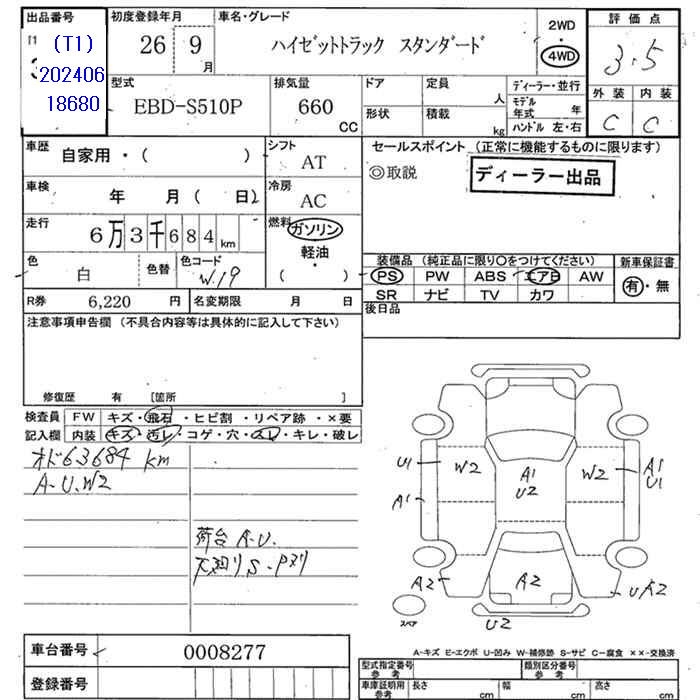 出品番号 初度登録年月 車名・グレード 2WD 評価点
(T1) 26 9 月 ハイゼットトラック スタンダード 4WD 3.5
202406
18680
型式 排気量 ドア 定員 人 ディーラー・並行 外装 内装
EBD-S510P 660 CC 形状 積載 kg モデル年式 年 C C
ハンドル 左・右
車歴 自家用・( ) シフト AT セールスポイント (正常に機能するものに限ります)
◎取説 ディーラー出品
車検 年 月 ( 日) 冷房 AC
走行 6万3千684km 燃料 ガソリン
軽油・
( )
色 白 色替 色コード W.19
装備品 (純正品に限り○をつけてください) 新車保証書
PS PW ABS エアB AW 有・無
SR ナビ TV カワ
R券 6,220 円 名変期限 月 日 後日品
注意事項申告欄 (不具合内容等は具体的に記入して下さい)
修復歴 有 [箇所 ]
検査員 FW キズ・飛石・ヒビ割・リペア跡・×要
記入欄 内装 キズ・汚レ・コゲ・穴・スレ・キレ・破レ
オド63684 km
A・U.W2
荷台 A・U.
下廻りS・Pヌリ
U1 W2 A1 W2 A1
U2 U1
A1
A2 A2 UA2
スペア U2
A-キズ E-エクボ U-凹み W-補修跡 S-サビ C-腐食 ××-交換済
車台番号 0008277
登録番号
型式指定番号 参考 類別区分番号 参考
車庫証明用 参考 長さ cm 幅 cm 高さ cm